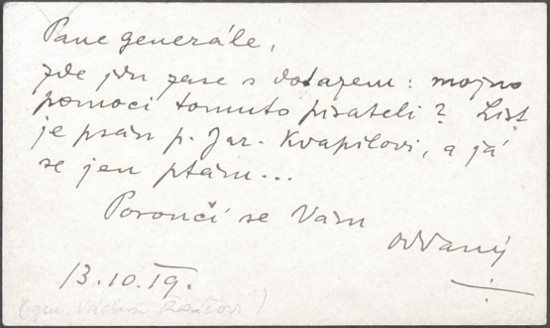 Pane generále,
zde jdu zase s dotazem: mojno
pomoci tomuto pisateli? List
je psán p. Jar. Kvapilovi, a já
se jen ptám...
Poroučí se Vám
oddaný
13.10.19.
(gen.